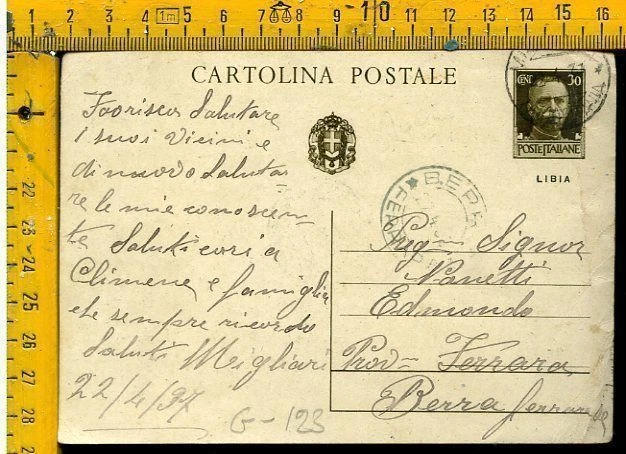 CARTOLINA POSTALE
CENT 30
POSTE ITALIANE
LIBIA
BERRA
FERRARA
Favorisca Salutare
I suoi Vicini e
di nuovo Saluta
re le mie conoscen
te Saluti cari a
Climene e famiglia
che sempre ricordo
Saluti Migliari
22/4/37
G-123
Preg- Signor
Nanetti
Edmondo
Prov- Ferrara
Berra ferrarese
1m
2 3 4 5 6 7 8 9 10 11 12 13 14 15 16
22
23
24
25
26
27
28